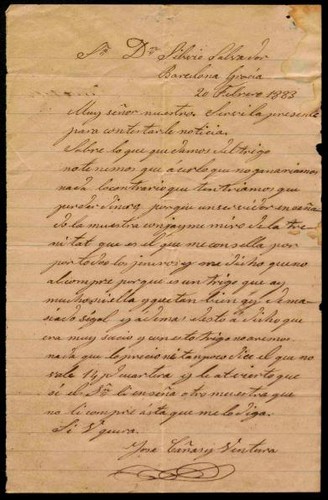 Sr. Dn. Silvio Salvador
Barcelona Gracia
20 Febrero 1883
Muy señor nuestro. Sirvi la presente
para contestarle noticia.
Sobre lo que quedamos del trigo
no tenemos que acerlo que no ganariamos
nada lo contrario que tendriamos que
perder dinero, porque un servidor enseña
do la muestra con jayme miro de la tre
nitat que es el que me consella por
por todos los jeneros y me a dicho que no
al compre por que es un trigo que ay
mucho sisella y que tan bien ay demas
iado segol y adema esto a dicho que
era muy sucio y con esto trigo no aremos
nada que le precio ni tanpoco dice el que no
vale 14 p cuartera y le atvierto que
si el Sr. li enseña otro muestra que
no li compre asta que me lo diga.
Si
Jose Cañas y Ventura